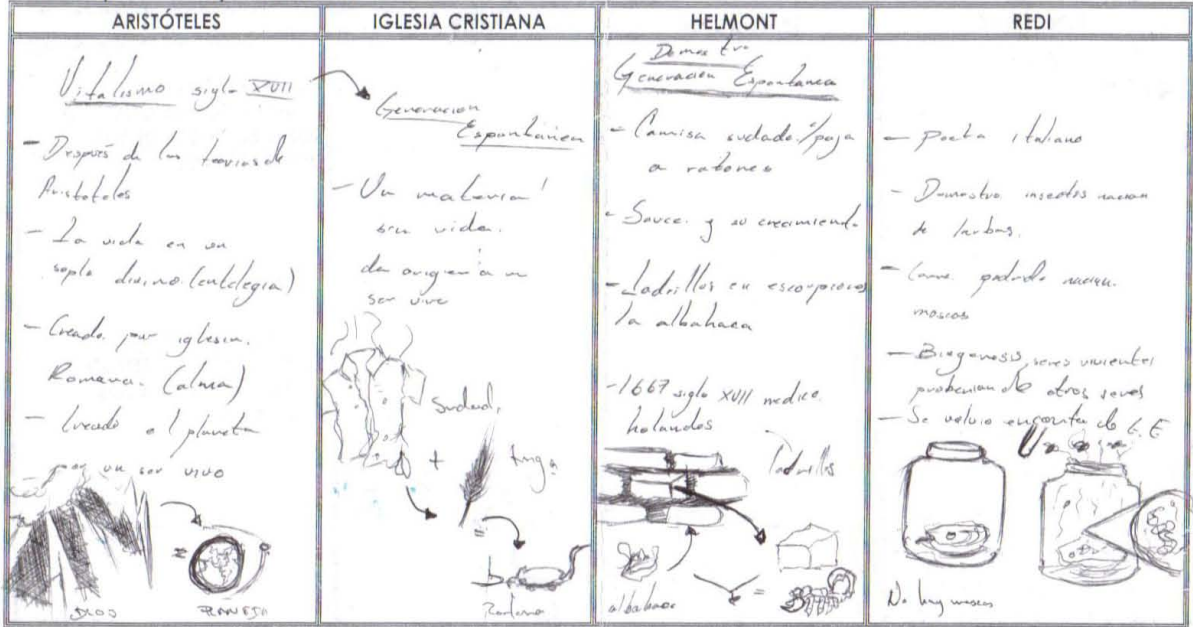 ARISTÓTELES
Vitalismo siglo XVII
- Después de las teorias de
Aristoteles
- La vida en un
soplo divino. (entelegia)
- Creado por iglesia.
Romana. (alma)
- Creado el planeta
por un ser vivo
=
DIOS
PLANETA
IGLESIA CRISTIANA
Generacion
Espontánea
- Un material
sin vida.
da origen a un
ser vivo
Sudad.
+
trigo
=
Ratona
HELMONT
Demostro
Generacion Espontanea
- Camisa sudada/paja
a ratones
- Sauce y su crecimiento
- Ladrillos en escorpiones
la albahaca
- 1667 siglo XVII medico
holandes
ladrillos
albahaca
=
REDI
- Poeta italiano
- Demostro insectos nacian
de larbas.
- Carne podrida nacian
moscas
- Biogenesis seres vivientes
probenian de otros seres
- Se volvio encontra de G.E
No hay moscas